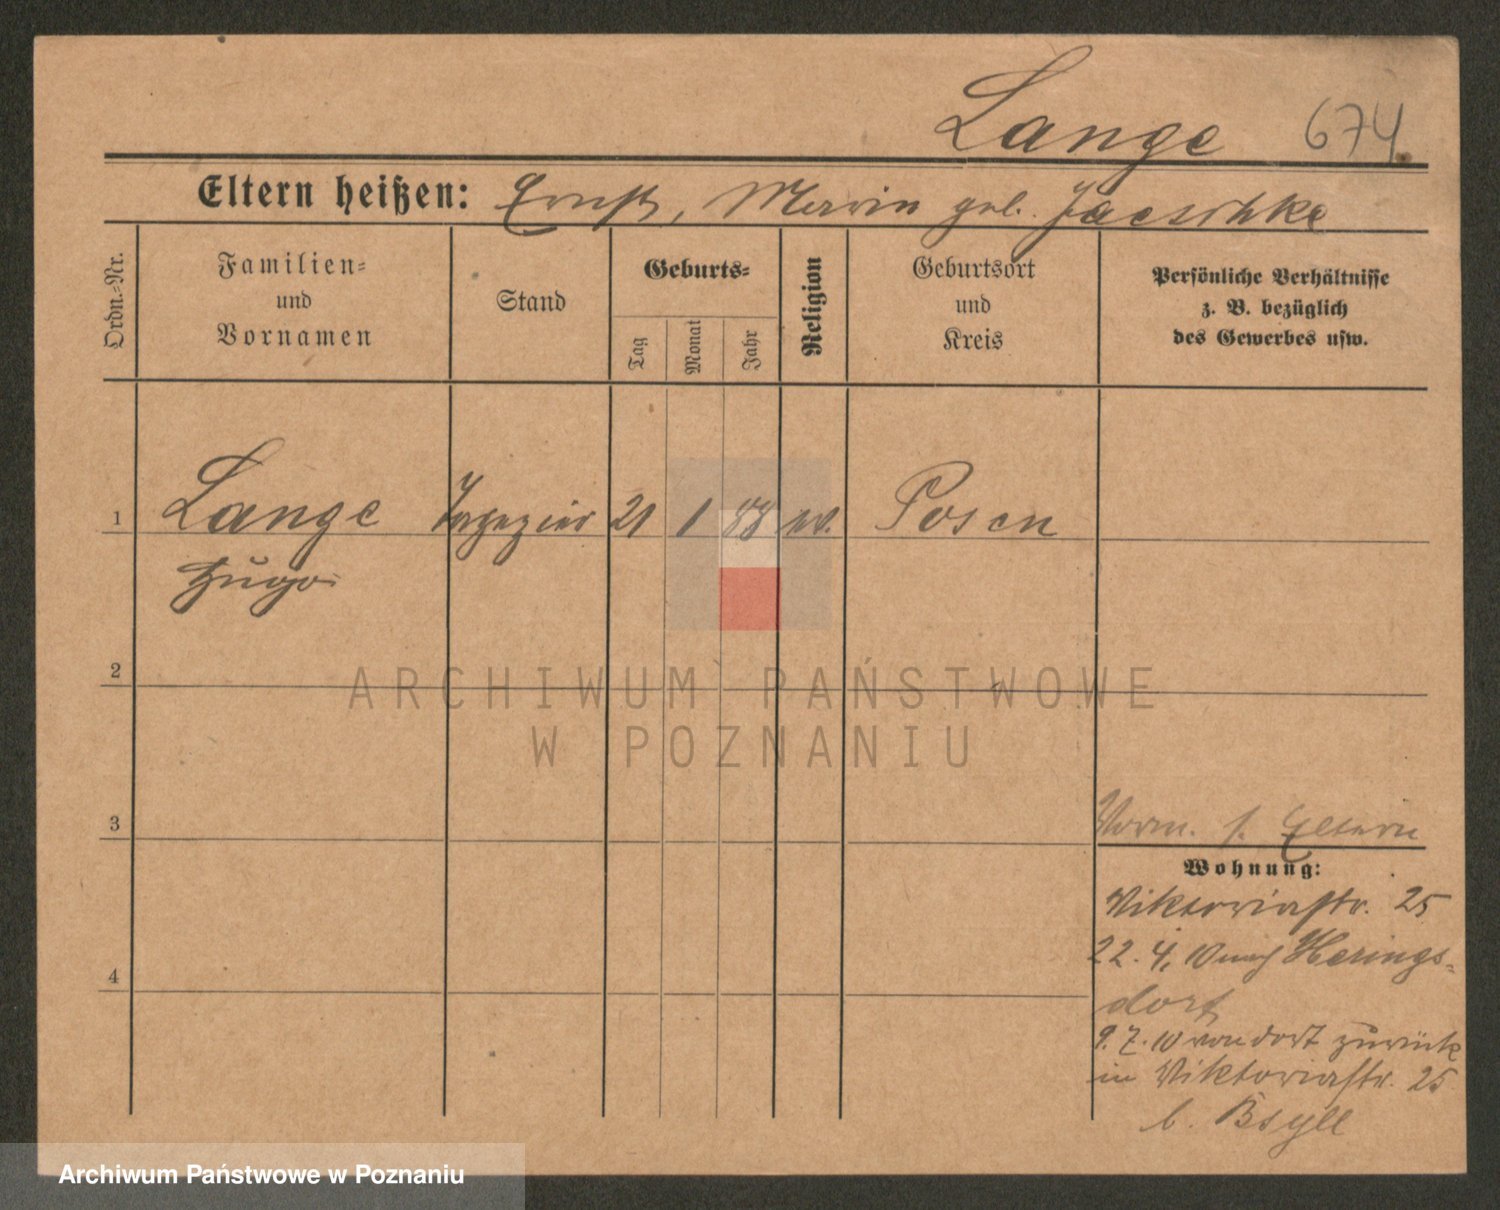 Lange 674
Eltern heißen: Ernst, Maria geb. Jaeschke
Ordn.-Nr.
Familien-
und
Vornamen
Stand
Geburts-
Tag
Monat
Jahr
Religion
Geburtsort
und
Kreis
Persönliche Verhältnisse
z. B. bezüglich
des Gewerbes usw.
1 Lange Tapezier 21 1 88 ev. Posen
Hugo
2
ARCHIWUM PAŃSTWOWE
W POZNANIU
3
Vorm. s. Eltern
Wohnung:
Viktoriastr. 25
22. 4. 10 nach Herings-
dorf
4
9. 7. 10 von dort zurück
in Viktoriastr. 25
b.
Archiwum Państwowe w Poznaniu